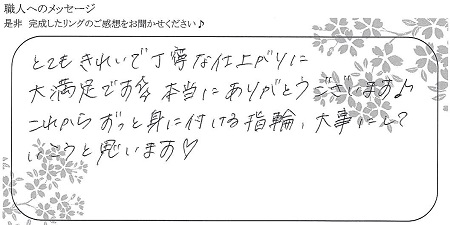 職人へのメッセージ
是非 完成したリングのご感想をお聞かせください♪
とてもきれいで丁寧な仕上がりに
大満足です☆ 本当にありがとうございます♪
これからずっと身に付ける指輪、大事にして
いこうと思います♡